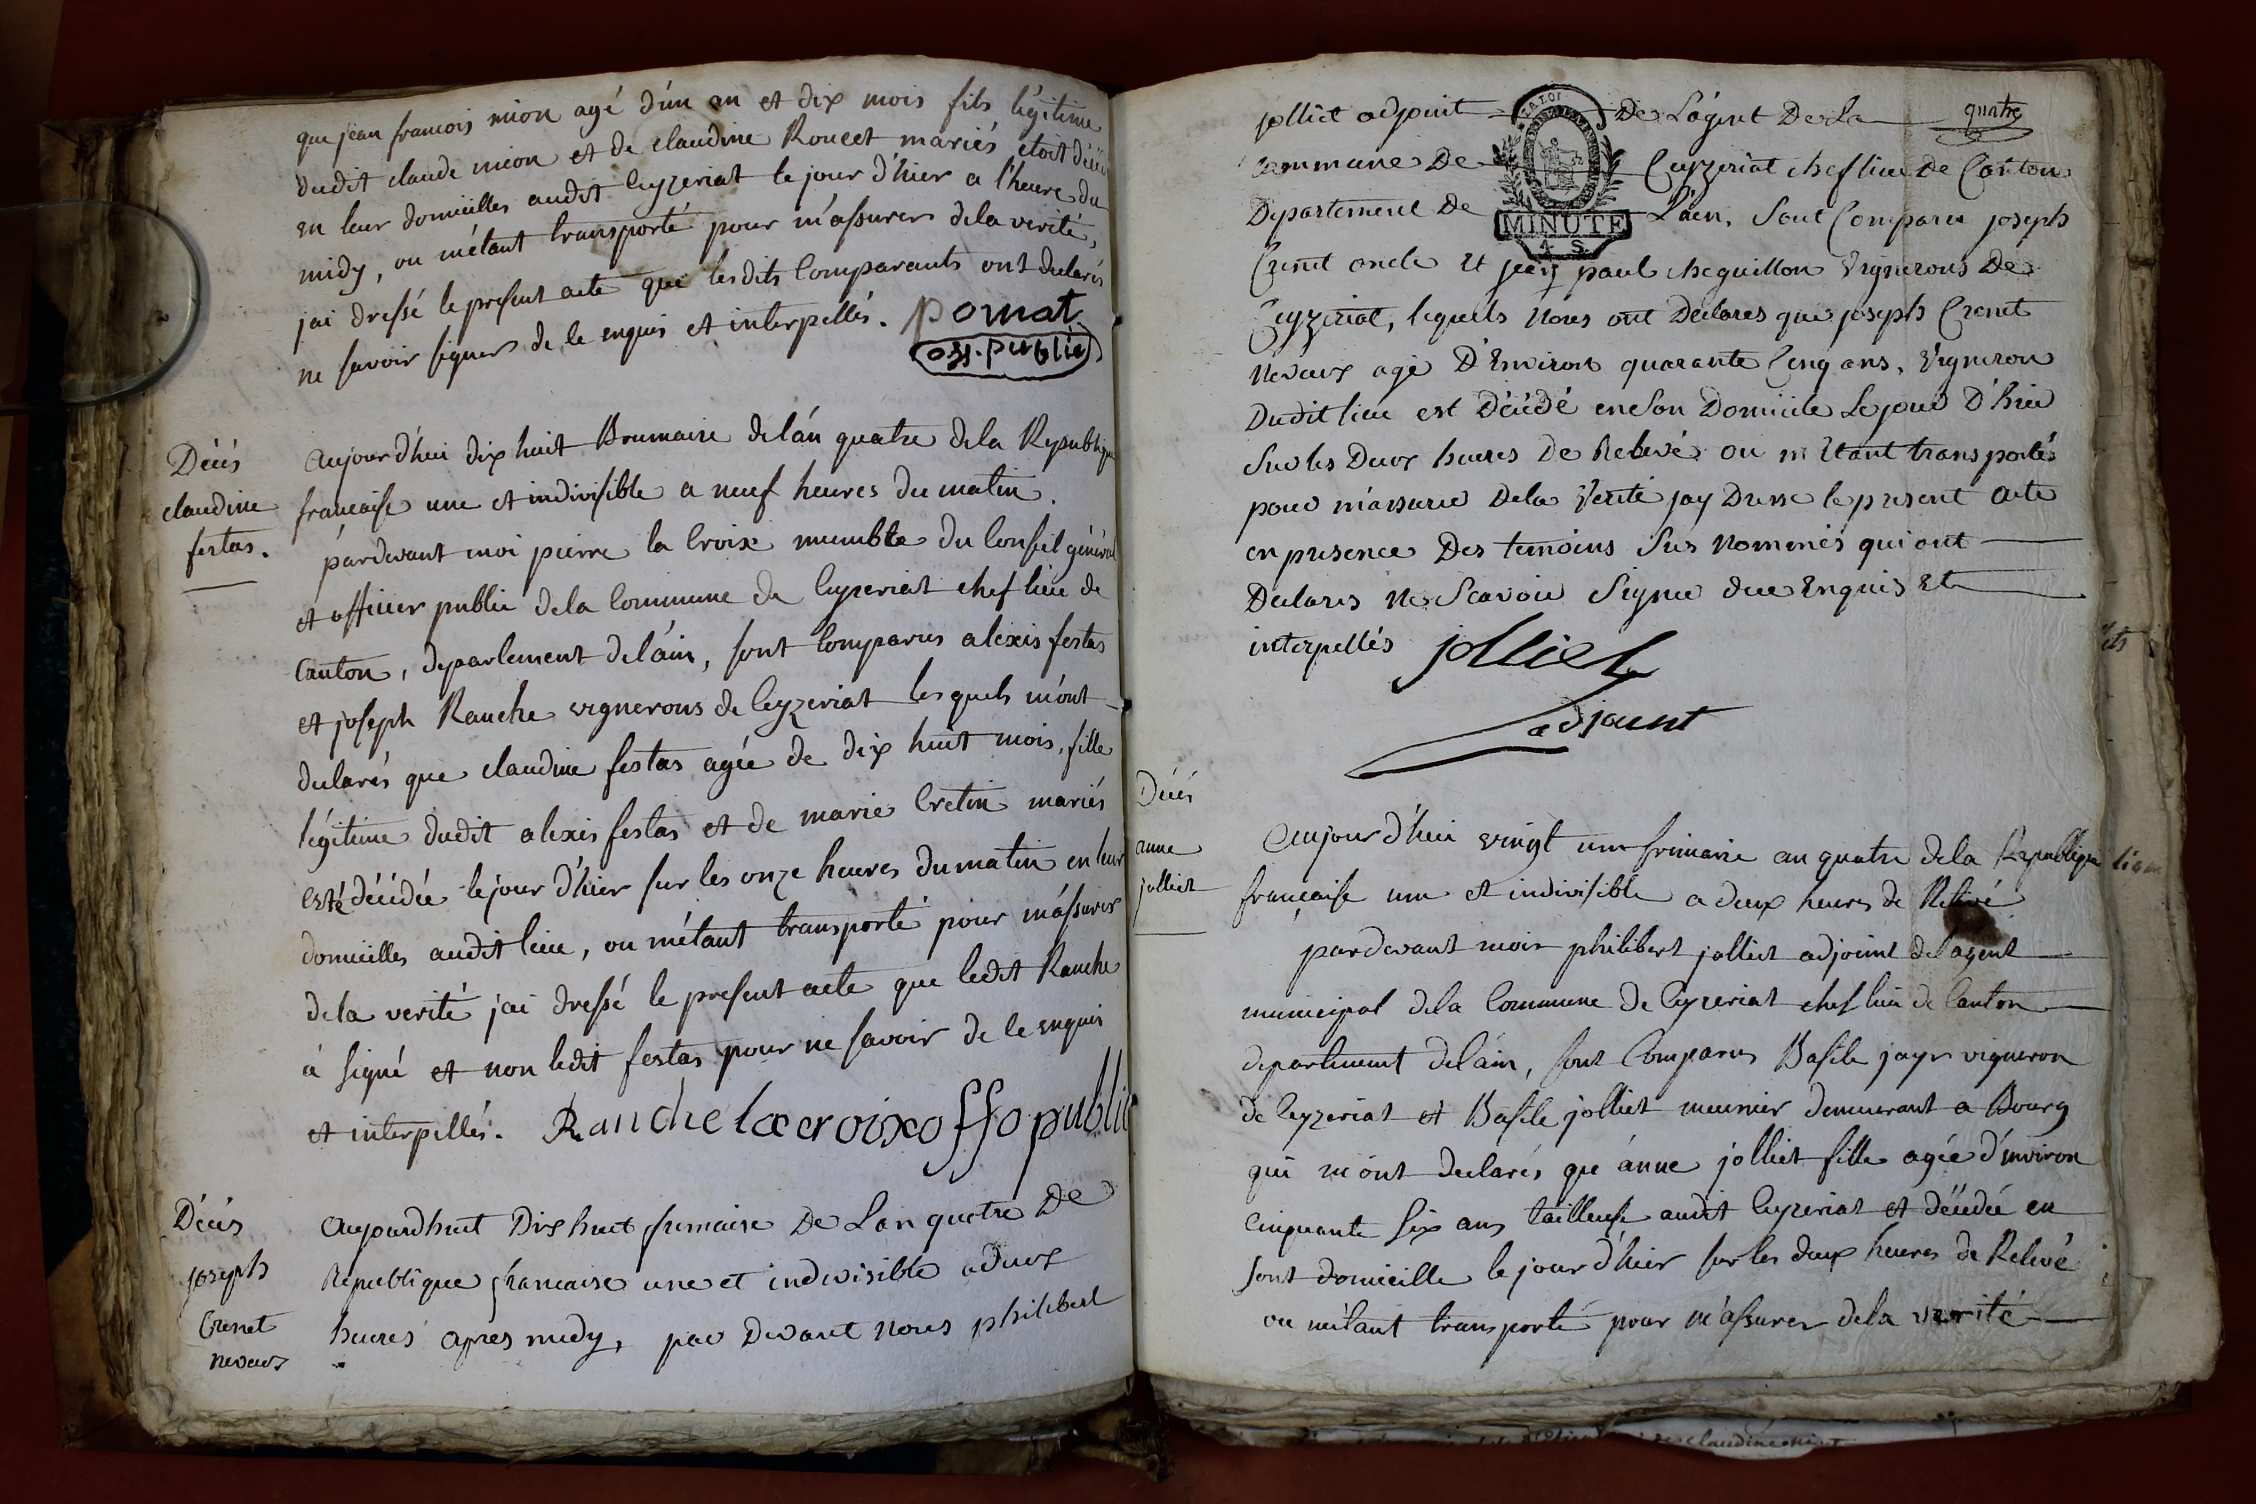 que jean francois mion agé d'un an et dix mois fils légitime
dudit claude mion et de claudine Roucet mariés étoit décédé
en leur domicilles audit Ceyzeriat le jour d'hier a l'heure du
midy, ou m'étant transporté pour m'assurer dela verité,
jai dressé le present acte que lesdits Comparants ont declarés
ne savoir signer de le enquis et interpellés. pomat
off. public
Décès
claudine
festas.
Aujourd'hui dix huit Brumaire delán quatre dela Republique
francaise une et indivisible a neuf heures du matin.
pardevant moi pierre la Croix membre du Conseil général
et officier public dela Commune de Ceyzeriat chef lieu de
Canton, departement deláin, sont Comparus alexis festas
et joseph Ranche vignerons de Ceyzeriat lesquels m'ont
declarés que claudine festas agée de dix huit mois, fille
légitime dudit alexis festas et de marie Cretin mariés
esté décédée le jour d'hier sur les onze heures du matin en leur
domicilles audit lieu, ou m'étant transporté pour m'assurer
dela verité jai dressé le present acte que ledit Ranche
à signé et non ledit festas pour ne savoir de le enquis
et interpellés. Ranche lacroix offo public
Décès
joseph
Crenet
neveux
Aujourdhuit Dix huit frimaire De Lan quatre De
Republique francaise une et indivisible a deux
heures apres midy, par Devant nous philibert
jolliet adjoint De L'agent De La
quatre
commune De Ceyzeriat chef lieu De Canton
LA LOI
Departement De L'ain, Sont Comparu joseph
MINUTE
4. S.
Crenet oncle et jean paul cheguillon Vignerons De
Ceyzeriat, lequels Nous ont Declares que joseph Crenet
Neveux agé D'Environ quarante Cinq ans, Vigneron
Dudit lieu est Décédé en Son Domicile Le jour D'hier
Sur les Deux heures De Relevé ou m'Etant transportés
pour m'assurer Dela Verité jay Dresse le present acte
en presence Des temoins Sus Nommés qui ont
Declarés Ne Scavoir Signer deee Enquis Et
interpellés jolliet
adjoint
Décès
anne
jolliet
Aujourd'hui vingt un frimaire an quatre dela Republique
française une et indivisible a deux heures de Relevé
pardevant moi philibert jolliet adjoint del'agent
municipal dela Commune de Ceyzeriat chef lieu de Canton
departement deláin, sont Comparus Basile jayr vigneron
de Ceyzeriat et Basile jolliet meunier demeurant a Bourg
qui m'ont declarés que ánne jolliet fille agée d'environ
cinquante six ans tailleuse audit Ceyzeriat et décédée en
sont domicille le jour d'hier sur les deux heures de Relevé
ou m'étant transporté pour m'assurer dela verité